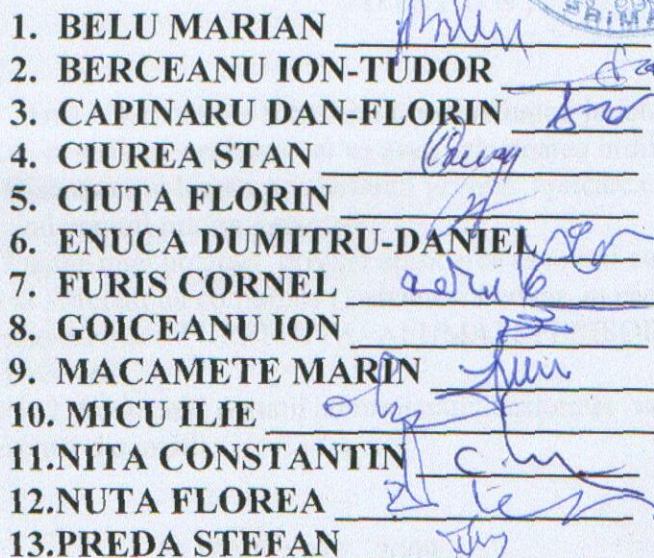 1. BELU MARIAN
2. BERCEANU ION-TUDOR
3. CAPINARU DAN-FLORIN
4. CIUREA STAN
5. CIUTA FLORIN
6. ENUCA DUMITRU-DANIEL
7. FURIS CORNEL
8. GOICEANU ION
9. MACAMETE MARIN
10. MICU ILIE
11.NITA CONSTANTIN
12.NUTA FLOREA
13.PREDA STEFAN